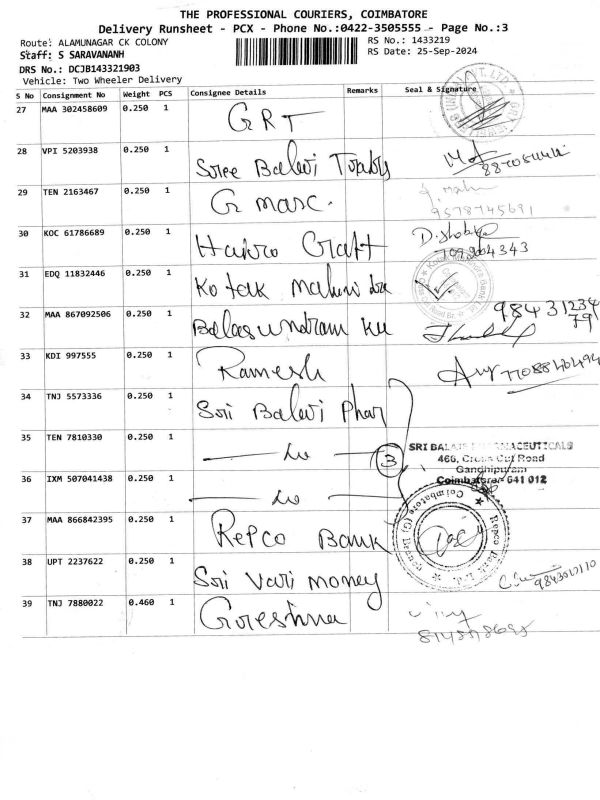 THE PROFESSIONAL COURIERS, COIMBATORE
Delivery Runsheet - PCX - Phone No.:0422-3505555 - Page No.:3
Route: ALAMUNAGAR CK COLONY
RS No.: 1433219
Staff: S SARAVANANH
RS Date: 25-Sep-2024
DRS No.: DCJB143321903
Vehicle: Two Wheeler Delivery
S No Consignment No Weight PCS Consignee Details Remarks Seal & Signature
27 MAA 302458609 0.250 1 GRT
28 VPI 5203938 0.250 1 Sree Balaji
29 TEN 2163467 0.250 1 G marc.
9578745691
30 KOC 61786689 0.250 1 Hakro Craft
31 EDQ 11832446 0.250 1 Kotak Mahindra
32 MAA 867092506 0.250 1 Balasundram
33 KDI 997555 0.250 1 Ramesh
34 TNJ 5573336 0.250 1 Sri Balaji Phar
35 TEN 7810330 0.250 1
3
SRI BALAJI PHARMACEUTICALS
466, Cross Cut Road
Gandhipuram
Coimbatore - 641 012
36 IXM 507041438 0.250 1
37 MAA 866842395 0.250 1 Repco Bank
38 UPT 2237622 0.250 1 Sri Vari money
39 TNJ 7880022 0.460 1